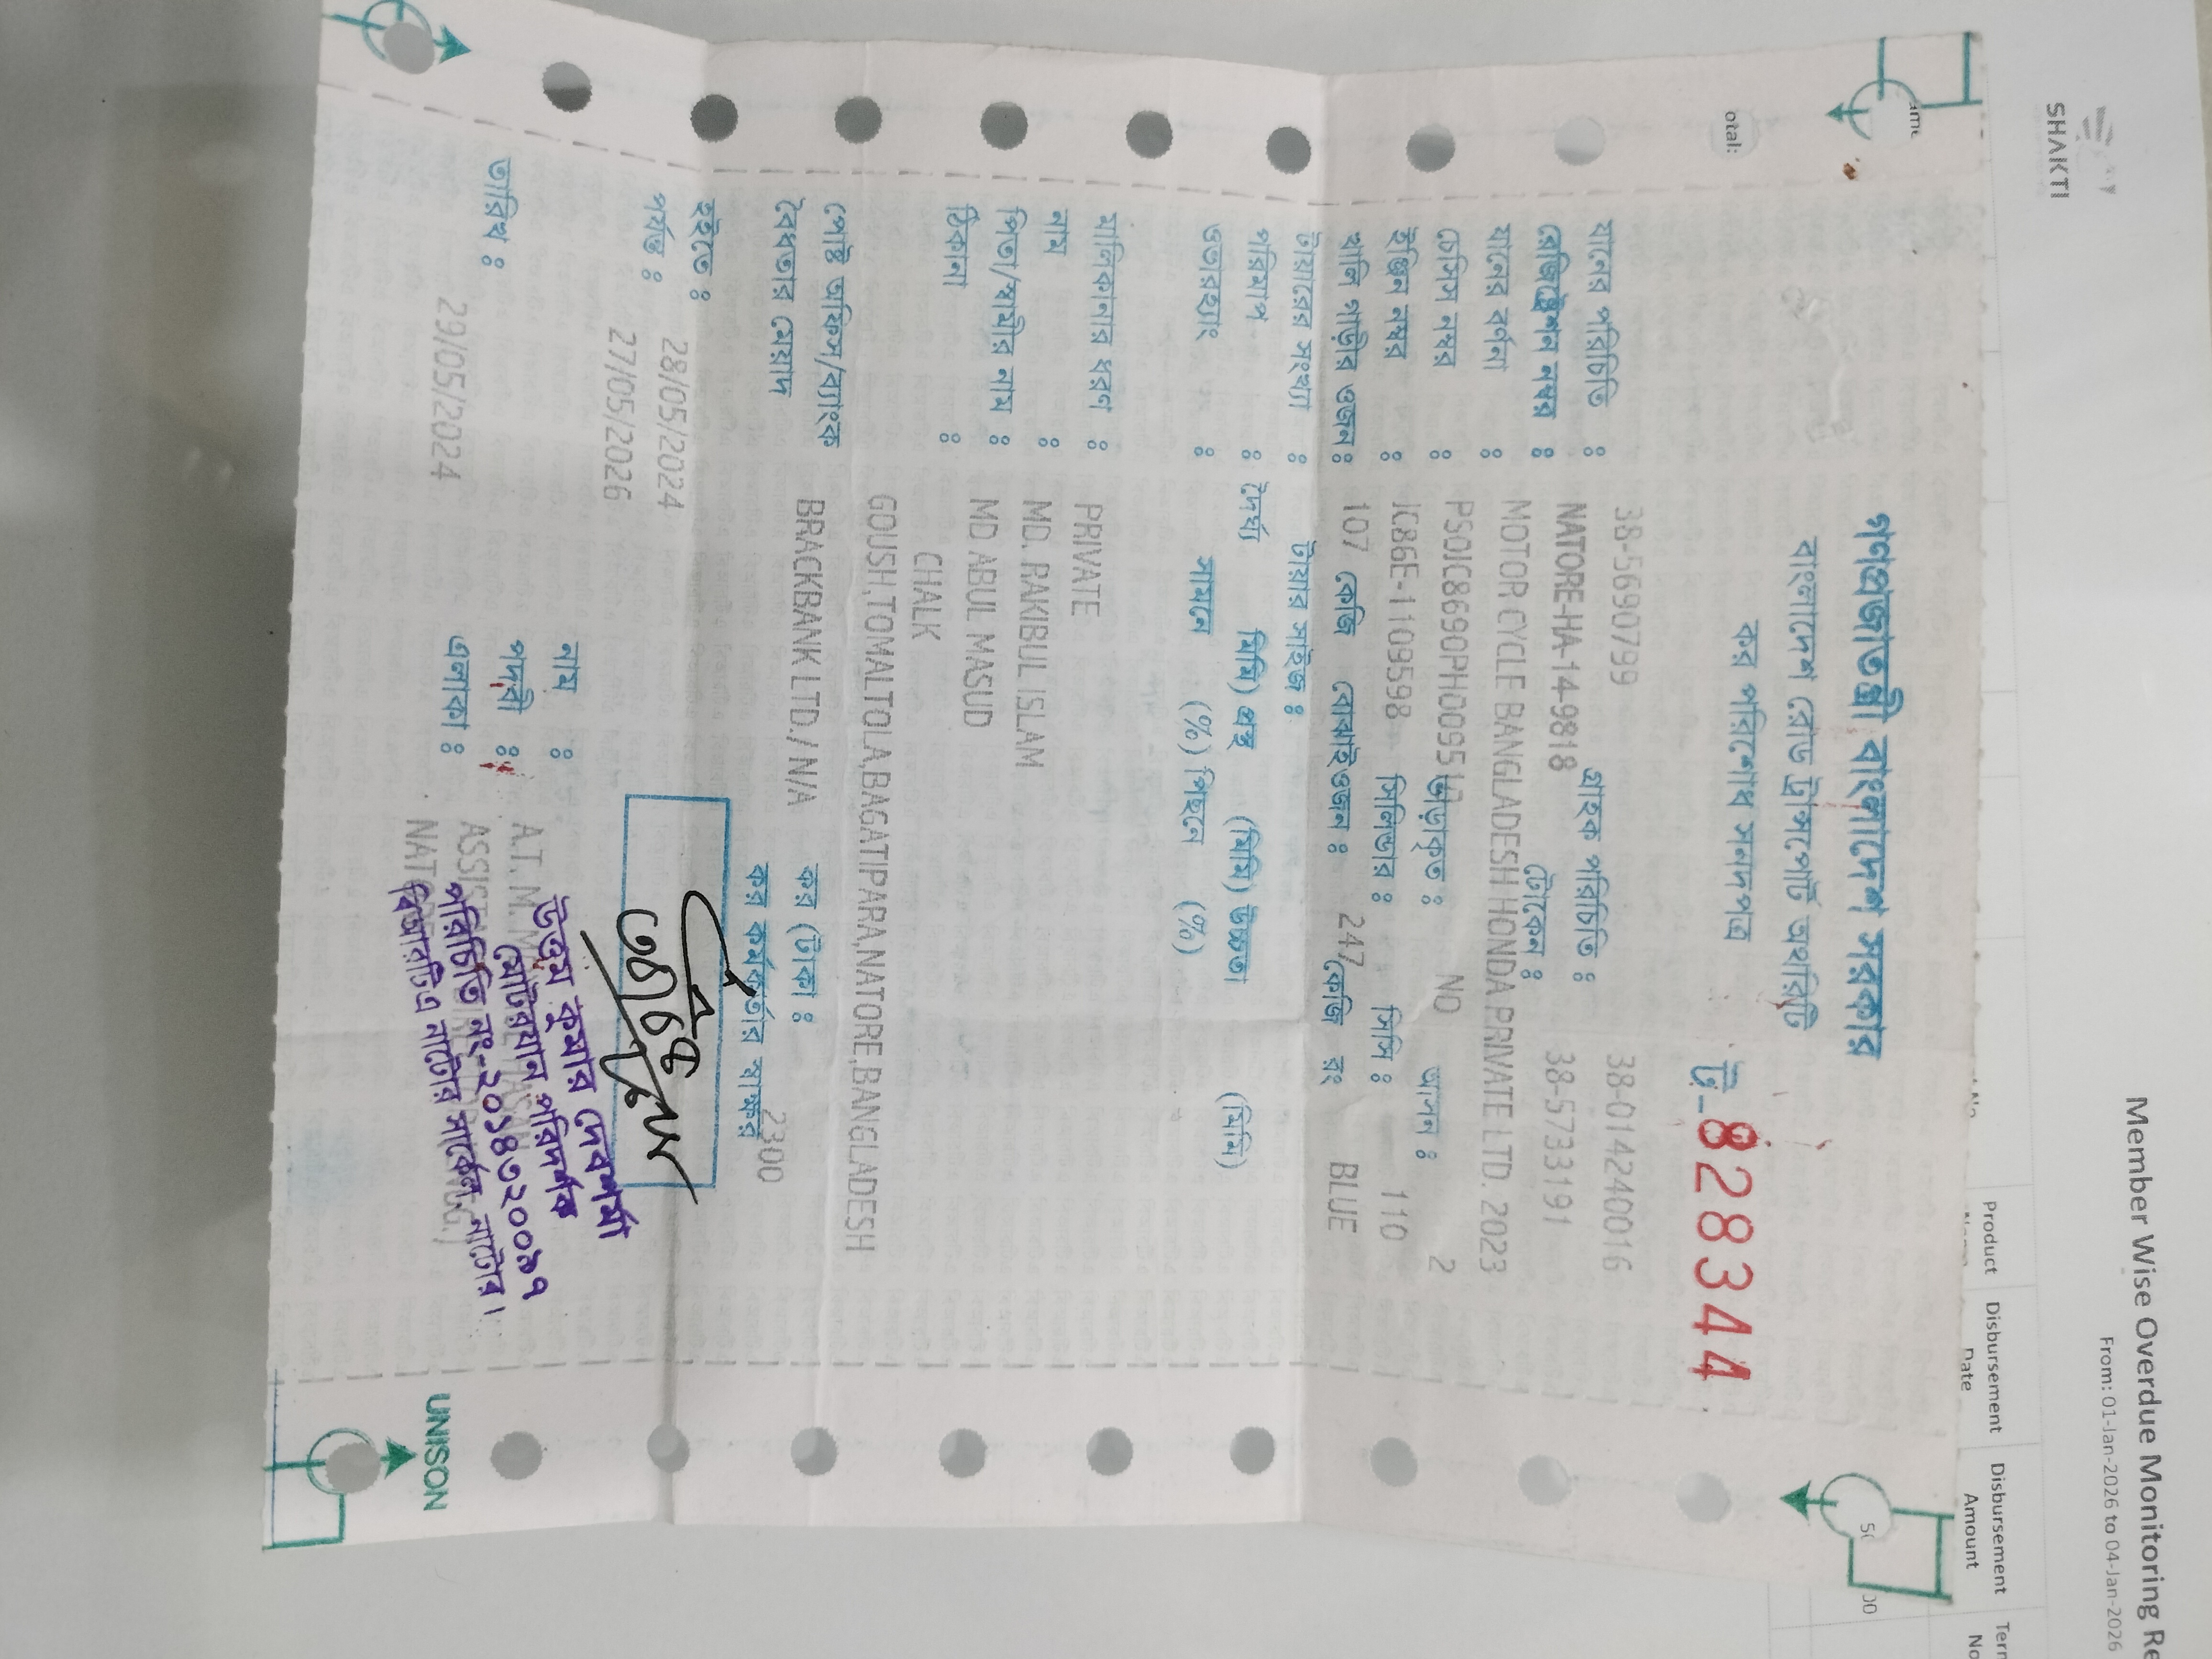 SHAKTI
Member Wise Overdue Monitoring Re
From: 01-Jan-2026 to 04-Jan-2026
Product
Disbursement Date
Disbursement Amount
otal:
গণপ্রজাতন্ত্রী বাংলাদেশ সরকার
বাংলাদেশ রোড ট্রান্সপোর্ট অথরিটি
কর পরিশোধ সনদপত্র
ট-8283444
যানের পরিচিতি : 38-5690799 গ্রাহক পরিচিতি : 38-014240016
রেজিষ্ট্রেশন নম্বর : NATORE-HA-14-9818 টোকেন : 38-5733191
যানের বর্ণনা : MOTOR CYCLE BANGLADESH HONDA PRIVATE LTD. 2023
চেসিস নম্বর : ভাড়াকৃত : NO আসন : 2
ইঞ্জিন নম্বর : JC86E-1109598 সিলিন্ডার : সিসি : 110
খালি গাড়ীর ওজন : 107 কেজি বোঝাই ওজন : 247 কেজি রং BLUE
টায়ারের সংখ্যা : টায়ার সাইজ :
পরিমাপ : দৈর্ঘ্য মিমি) প্রস্থ (মিমি) উচ্চতা (মিমি)
ওভারহ্যাং : সামনে (%) পিছনে (%)
মালিকানার ধরণ : PRIVATE
নাম : MD. RAKIBUL ISLAM
পিতা/স্বামীর নাম : MD ABUL MASUD
ঠিকানা : CHALK
GOUSH,TOMALTOLA,BAGATIPARA,NATORE,BANGLADESH
পোষ্ট অফিস/ব্যাংক BRACKBANK LTD./ N/A কর (টাকা : 2300
বৈধতার মেয়াদ কর কর্মকর্তার স্বাক্ষর
হইতে : 28/05/2024
পর্যন্ত : 27/05/2026
নাম : A.T. M.
পদবী :
এলাকা :
উত্তম কুমার দেবশর্মা
মোটরযান পরিদর্শক
পরিচিতি নং-২০১৪৭২০০৯৭
বিআরটিএ নাটোর সার্কেল, নাটোর।
তারিখ : 29/05/2024
UNISON